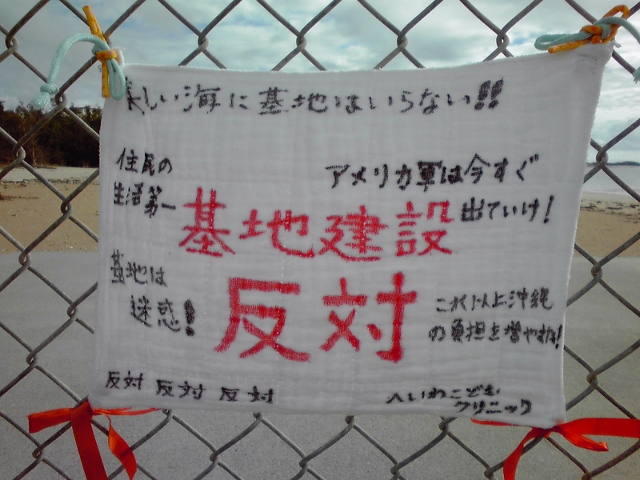 美しい海に基地はいらない!!
住民の
生活第一
アメリカ軍は今すぐ
出ていけ!
基地建設
反対
基地は
迷惑!
これ以上沖縄
の負担を増やすな!
反対 反対 反対
へいわこども
クリニック